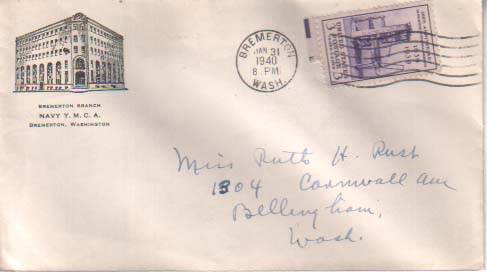 BREMERTON BRANCH
NAVY Y. M. C. A.
BREMERTON, WASHINGTON
BREMERTON
JAN 31
1940
8 PM
WASH.
Miss Ruth H. Rust
1304 Cornwall Ave
Bellingham,
Wash.